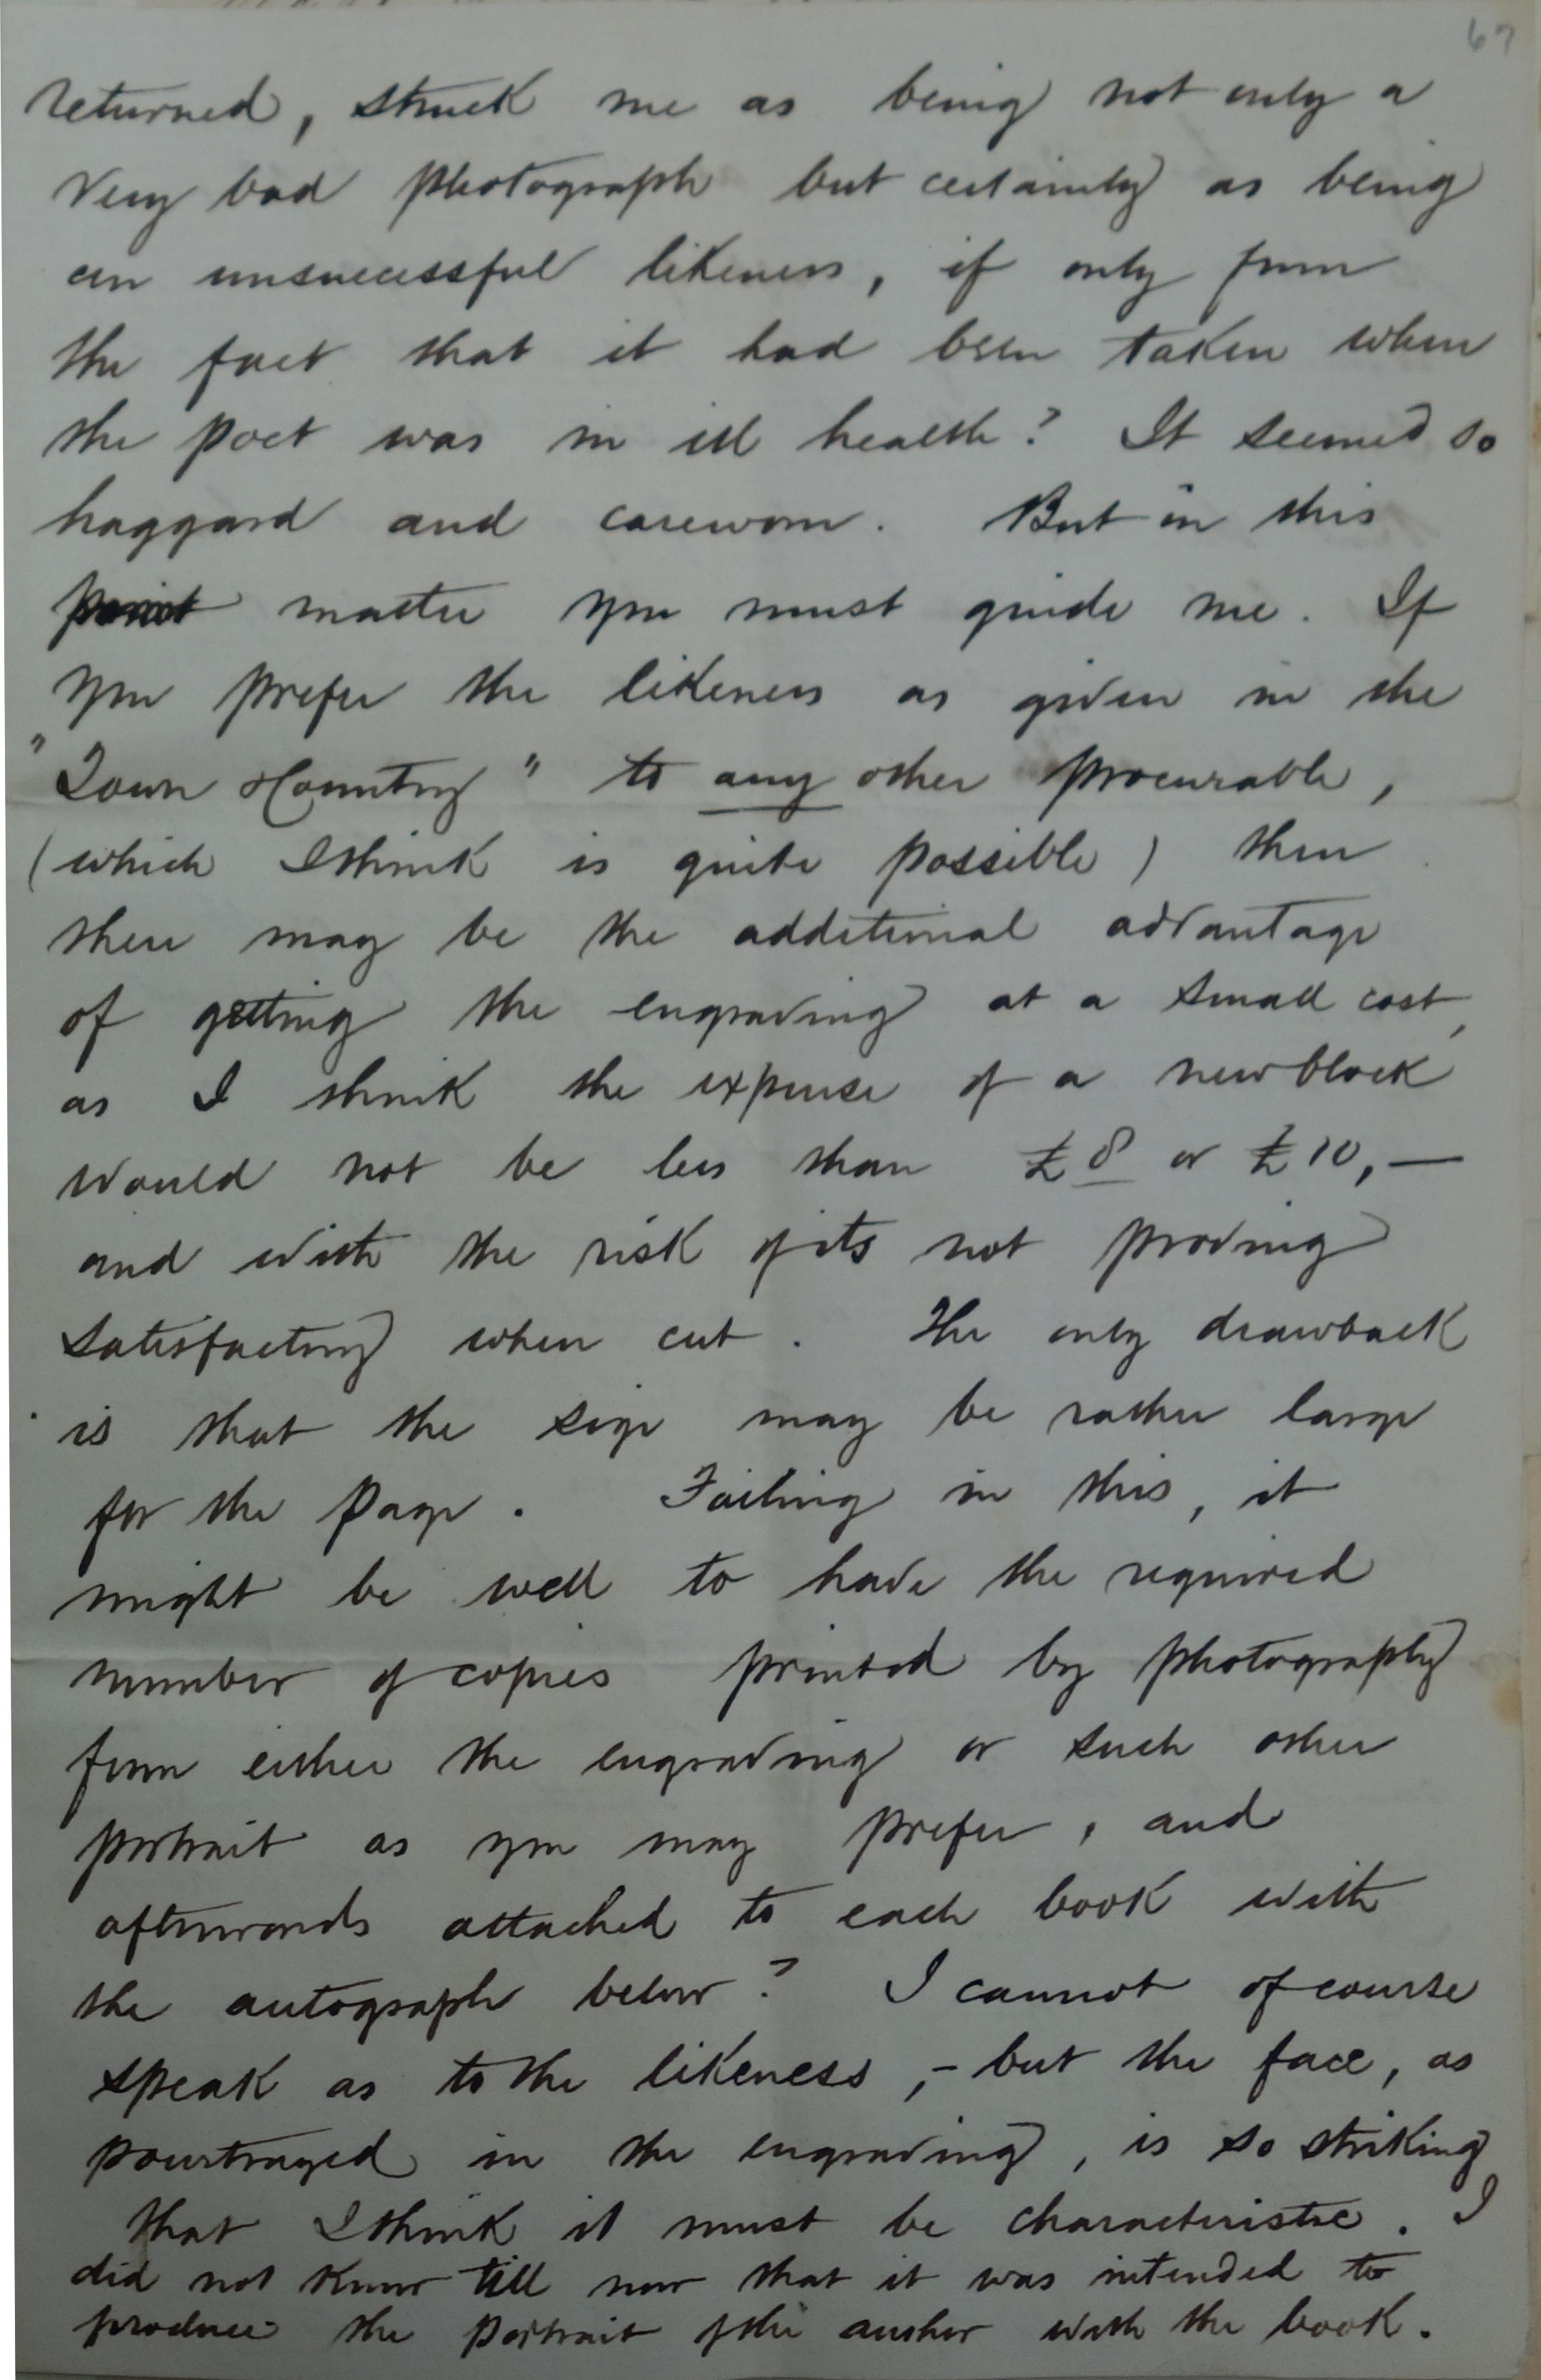 67
returned, struck me as being not only a
very bad photograph but certainly as being
an unsuccessful likeness, if only from
the fact that it had been taken when
the poet was in ill health? It seemed so
haggard and careworn. But in this
point matter you must guide me. If
you prefer the likeness as given in the
"Town & Country" to any other procurable,
(which I think is quite possible) then
there may be the additional advantage
of getting the engraving at a small cost,
as I think the expense of a new block
would not be less than £8 or £10,—
and with the risk of its not proving
satisfactory when cut. The only drawback
is that the size may be rather large
for the page. Failing in this, it
might be well to have the required
number of copies printed by photography
from either the engraving or such other
portrait as you may prefer, and
afterwards attached to each book with
the autograph below? I cannot of course
speak as to the likeness,- but the face, as
pourtrayed in the engraving, is so striking
that I think it must be characteristic. I
did not know till now that it was intended to
produce the portrait of the author with the book.